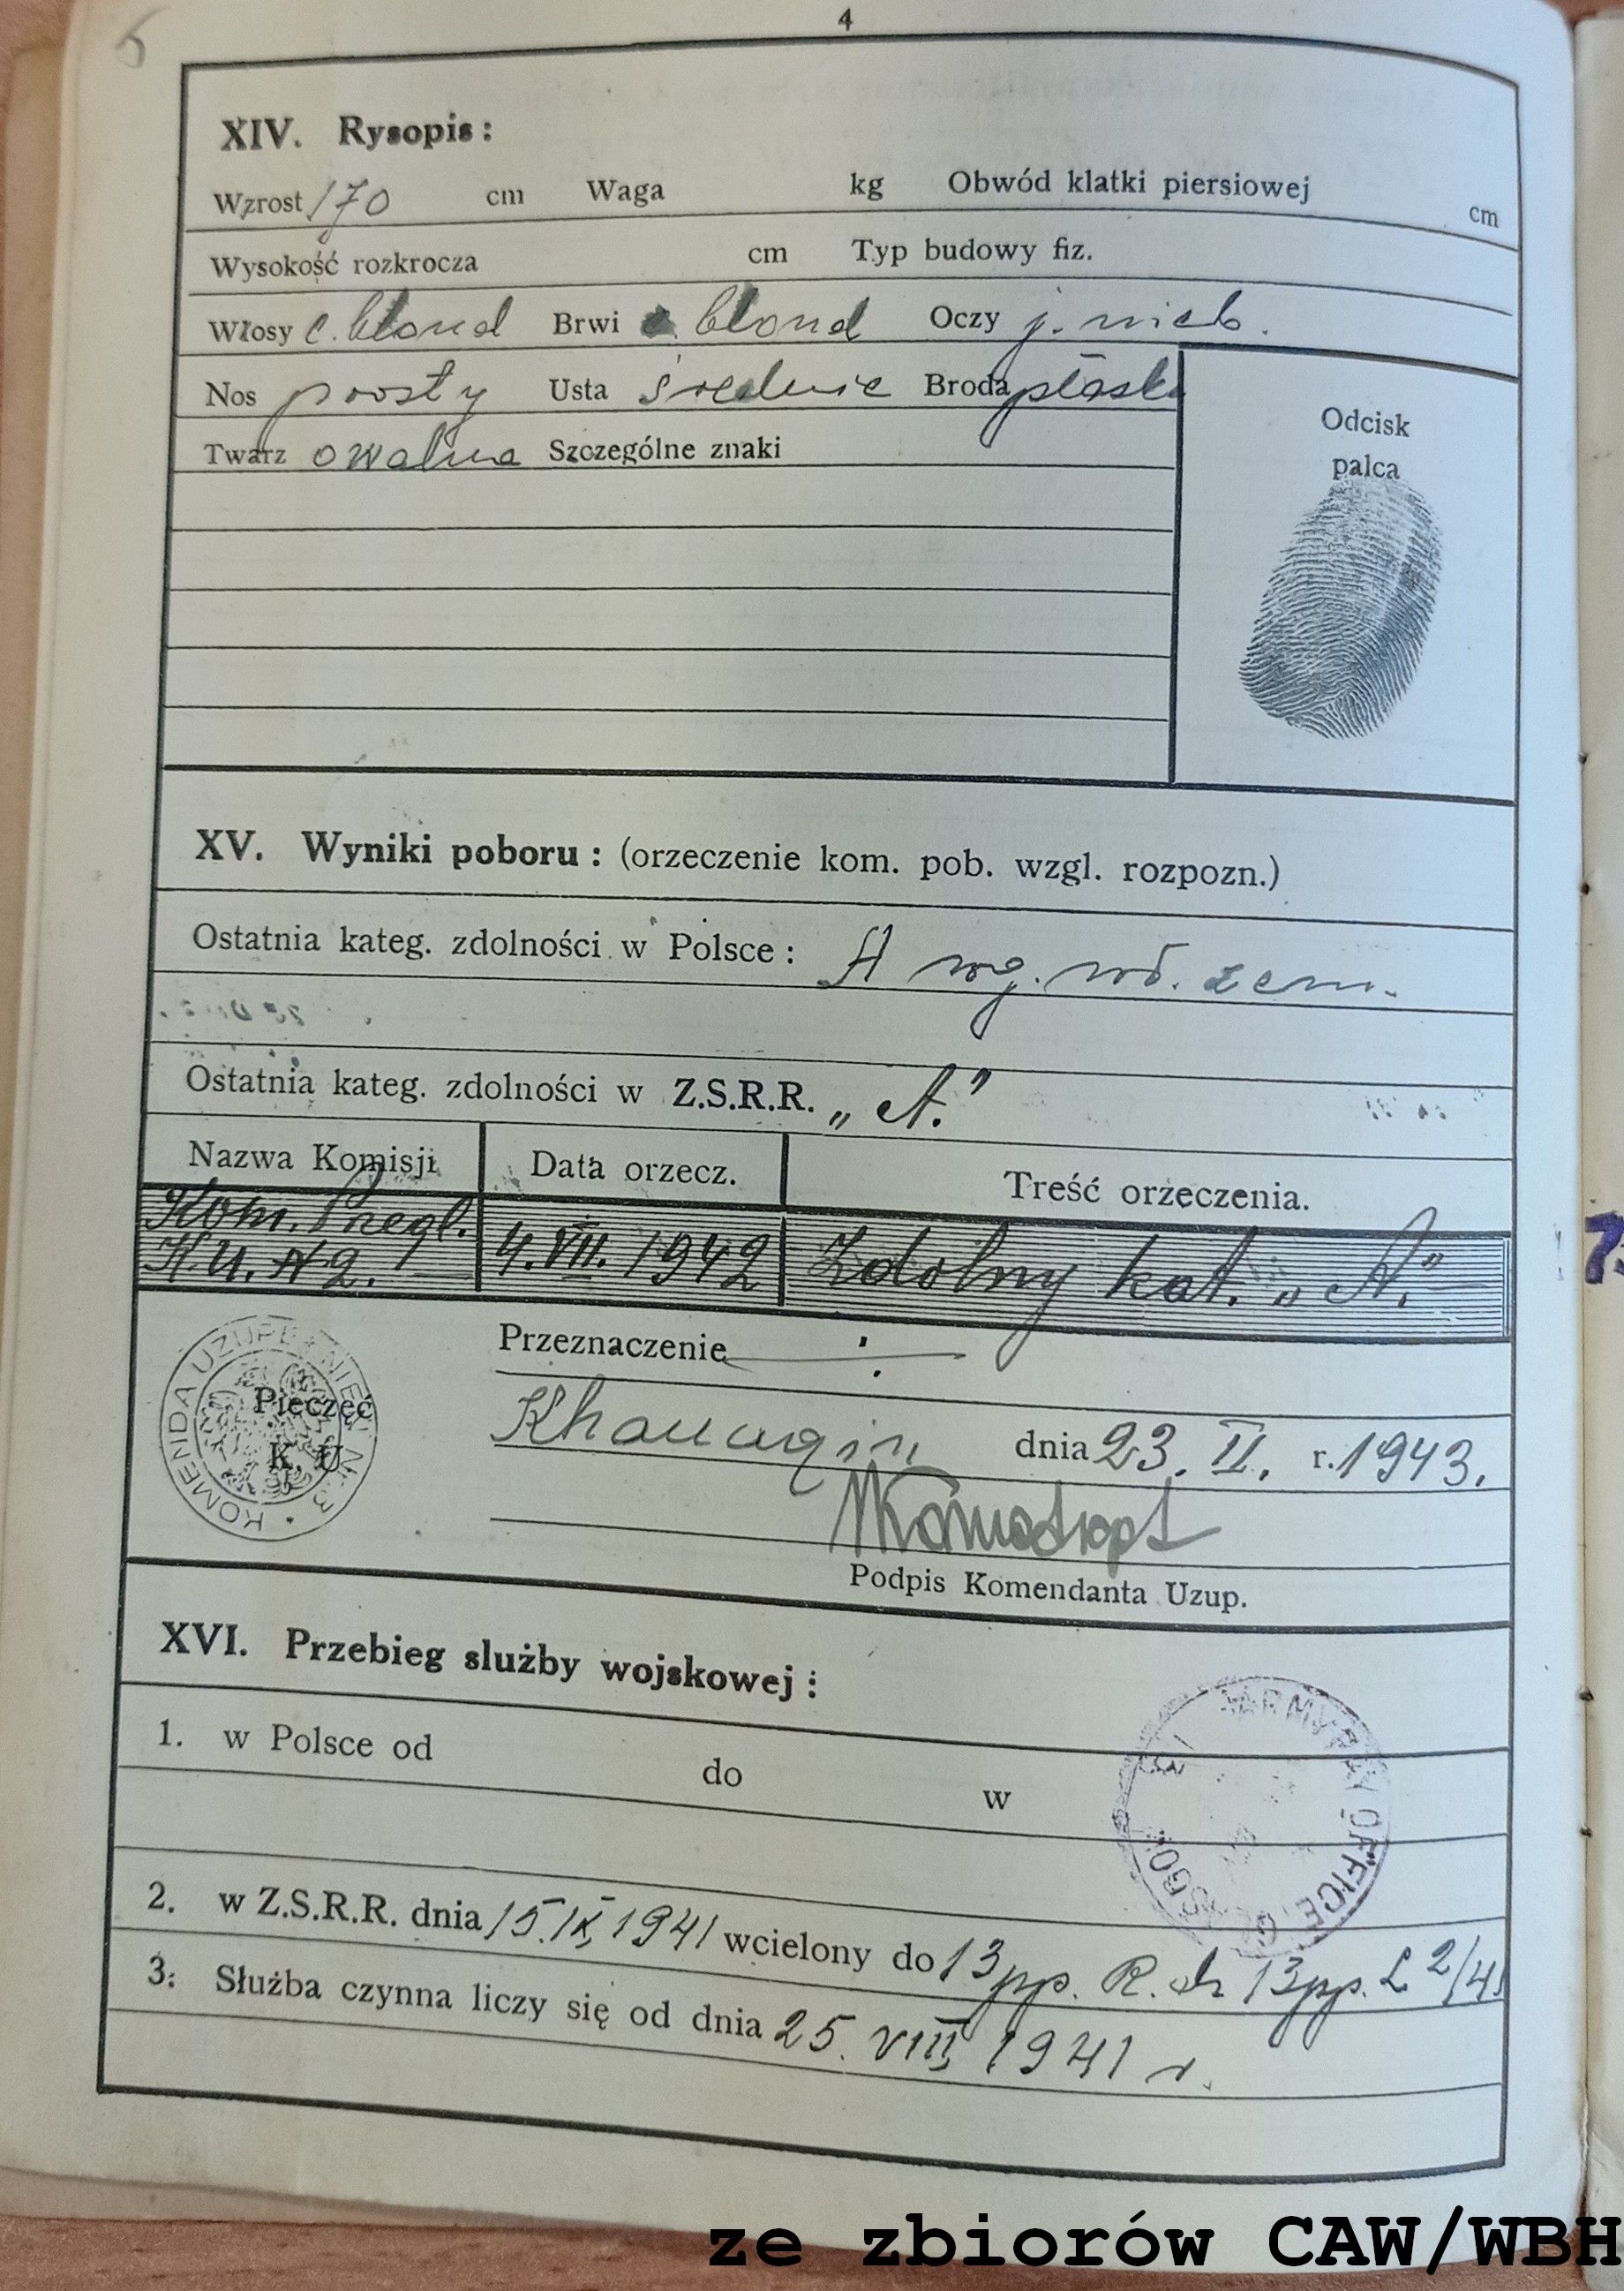 4
5
XIV. Rysopis :
Wzrost 170 cm Waga kg Obwód klatki piersiowej cm
Wysokość rozkrocza cm Typ budowy fiz.
Włosy c. blond Brwi c. blond Oczy j. nieb.
Nos prosty Usta średnie Broda płaska
Twarz owalna Szczególne znaki
Odcisk
palca
XV. Wyniki poboru : (orzeczenie kom. pob. wzgl. rozpozn.)
Ostatnia kateg. zdolności w Polsce : A wg. wł. zezn.
Ostatnia kateg. zdolności w Z.S.R.R. „A."
Nazwa Komisji Data orzecz. Treść orzeczenia.
Kom. Przegl.
K.U. № 2. 4. VII. 1942 Zdolny kat. „A."
Przeznaczenie
KOMENDA UZUPEŁNIEŃ Nr 3
Pieczęć
K. U.
Khanaqin dnia 23. II. r. 1943.
Podpis Komendanta Uzup.
XVI. Przebieg służby wojskowej :
1. w Polsce od do w
ARMY PAY OFFICE
2. w Z.S.R.R. dnia 15. IX. 1941 wcielony do 13 pp. R. dz 13 pp. L 2/41
3. Służba czynna liczy się od dnia 25. VIII 1941 r.
ze zbiorów CAW/WBH